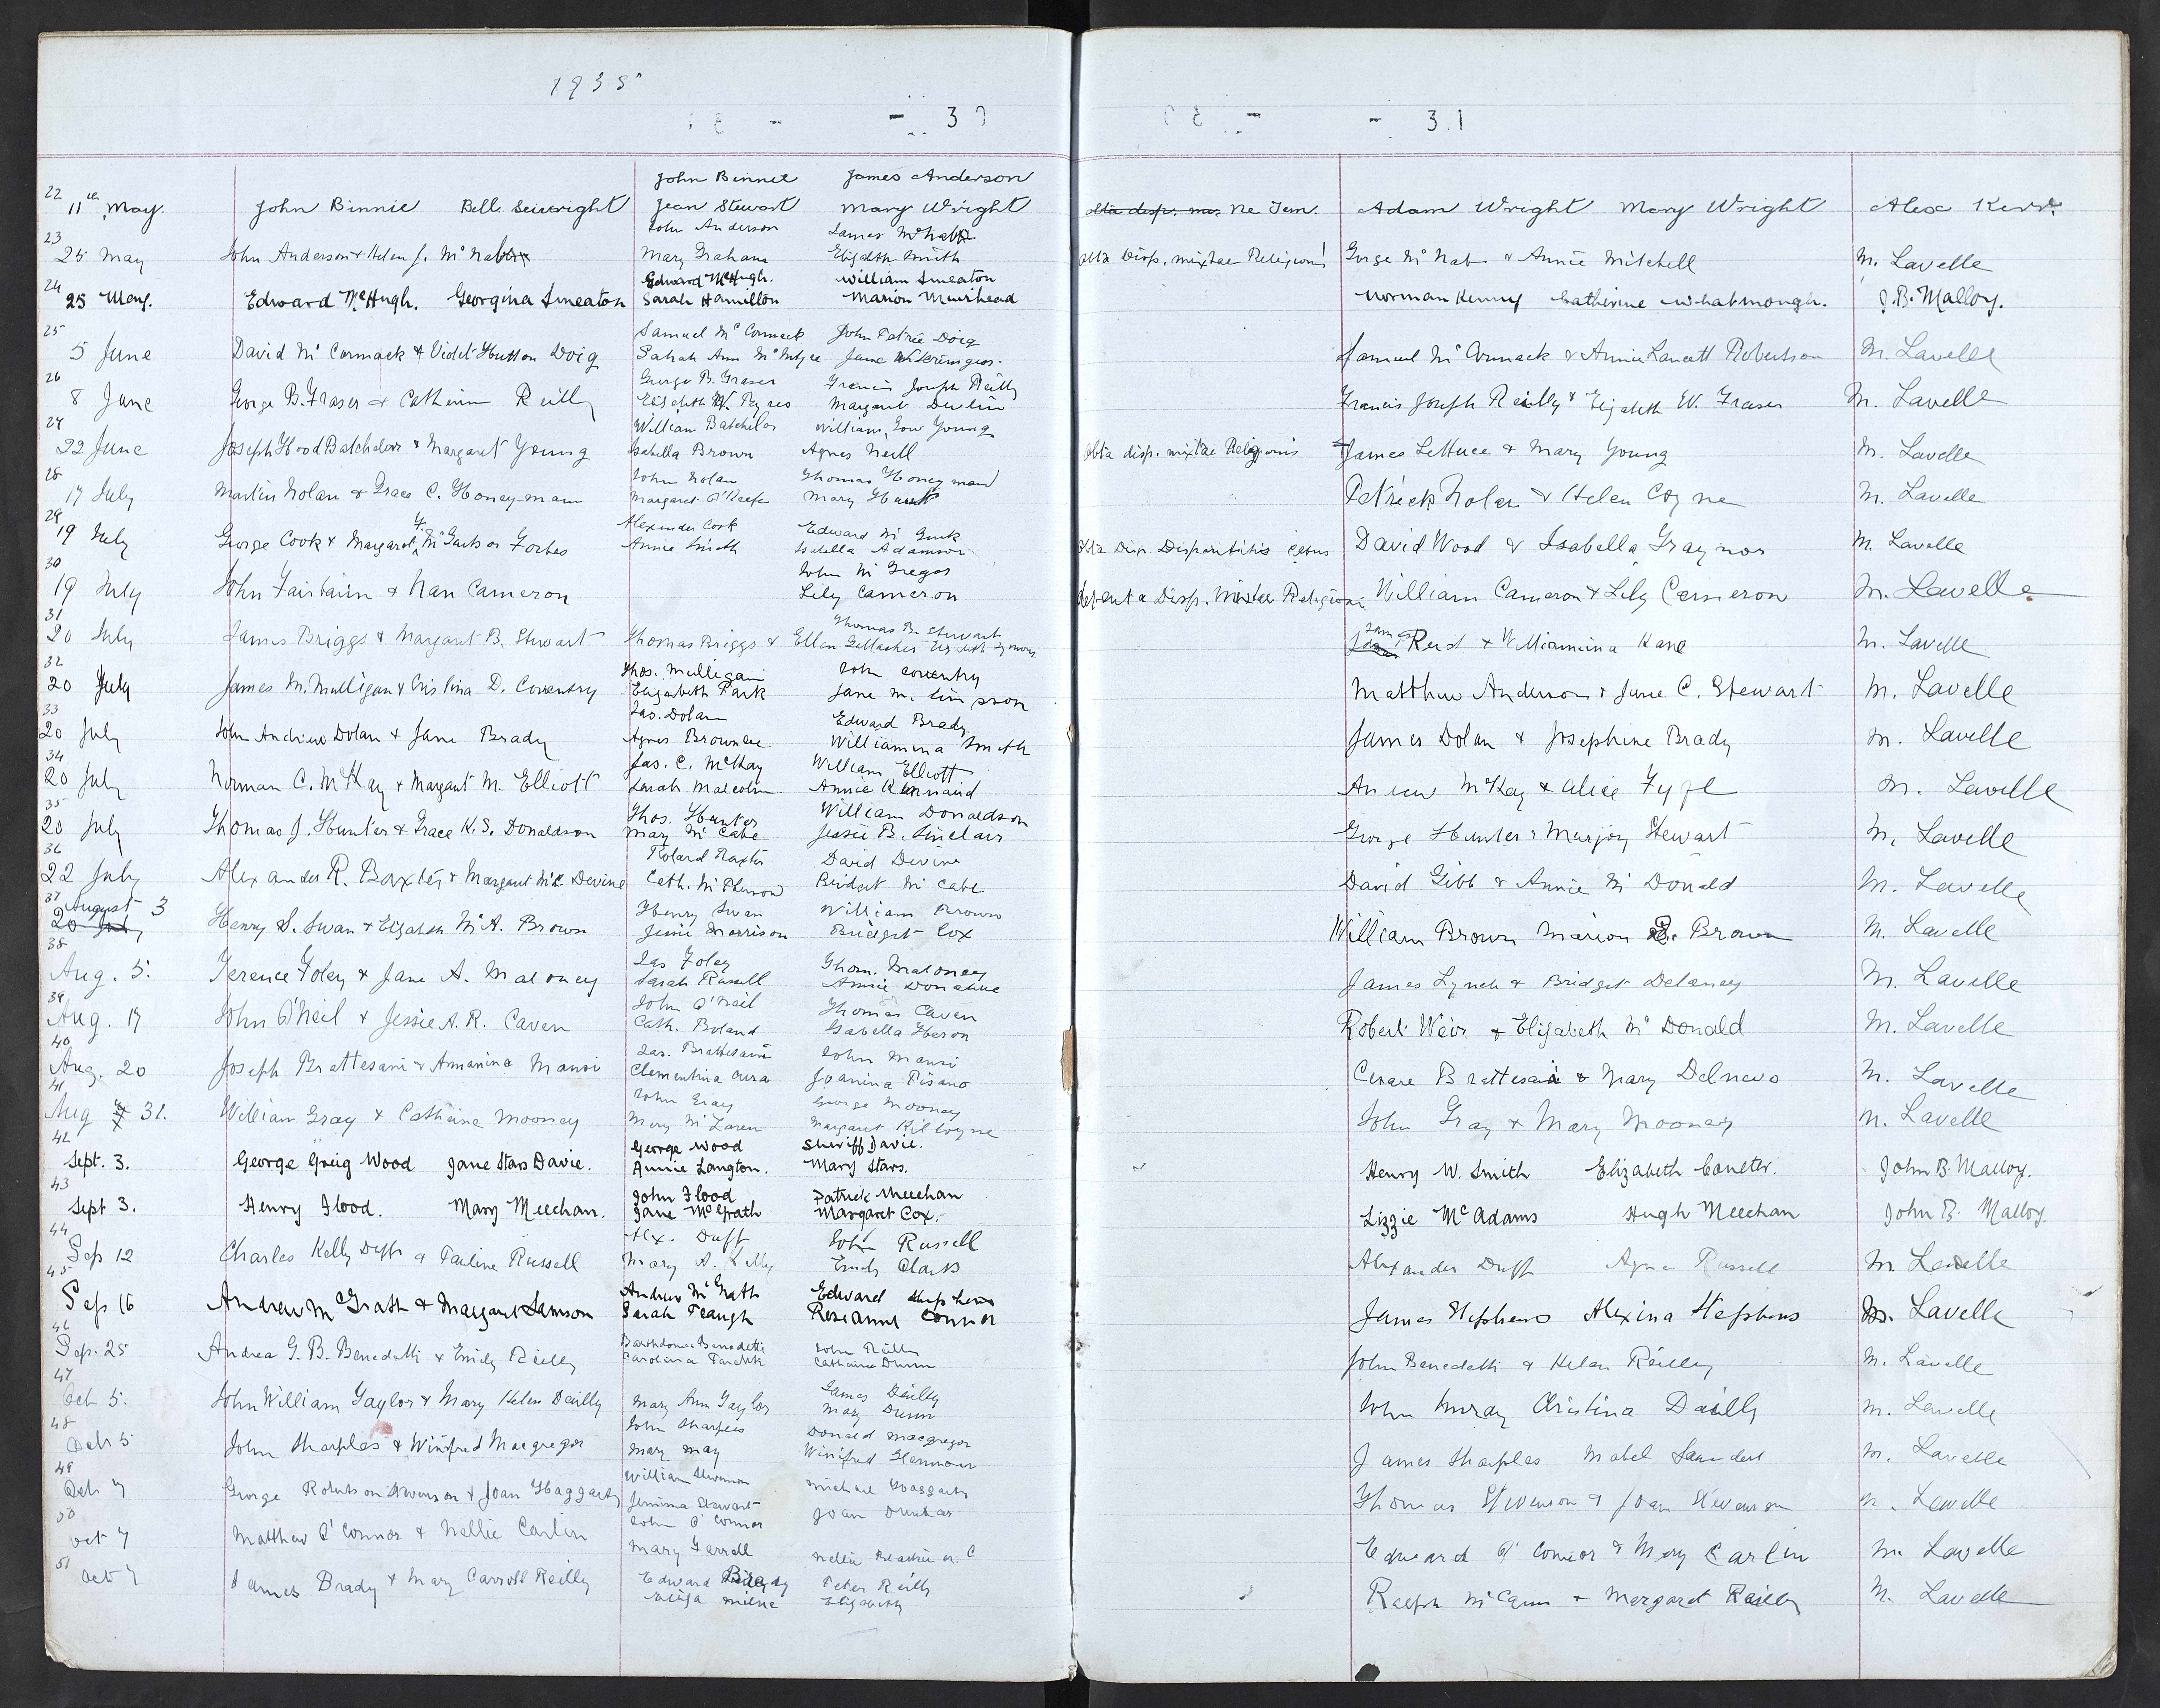 1935
- 30
- 31
John Binnie James Anderson
22 11th May. John Binnie Bell. Seivright Jean Stewart Mary Wright Ne Tem. Adam Wright Mary Wright Alex Kerr.
John Anderson James McNab
23 25 May John Anderson & Helen J. McNab Mary Graham Elizabeth Smith obta Disp. mixtae Religionis George McNab & Annie Mitchell M. Lavelle
Edward McHugh. William Smeaton
24 25 May. Edward McHugh. Georgina Smeaton Sarah Hamilton Marion Muirhead Norman Kenny Catherine Whatmough. J.B. Malloy.
Samuel McCormack John Petrie Doig
25 5 June David McCormack & Violet Hutton Doig Sarah Ann McIntyre Jane Samuel McCormack & Annie Robertson M. Lavelle
George B. Fraser Francis Joseph Reilly
26 8 June George B. Fraser & Catherine Reilly Elizabeth Margaret Devlin Francis Joseph Reilly & Elizabeth W. Fraser M. Lavelle
William Batchelor William Gow Young
27 22 June Joseph Hood Batchelor & Margaret Young Isabella Brown Agnes Neill obta disp. mixtae Religionis James Lettuce & Mary Young M. Lavelle
John Nolan Thomas Honeyman
28 17 July Martin Nolan & Grace C. Honeyman Margaret O'Keefe Mary Patrick Nolan & Helen Coyne M. Lavelle
Alexander Cook Edward
29 19 July George Cook & Margaret Forbes Annie Smith Isabella Adamson obta Disp. Disparitatis Cultus David Wood & Isabella M. Lavelle
John McGregor
30 19 July John Fairbairn & Nan Cameron Lily Cameron Disp. Mixtae Religionis William Cameron & Lily Cameron M. Lavelle
Thomas B. Stewart
31 20 July James Briggs & Margaret B. Stewart Thomas Briggs & Ellen Gallacher James Reid & Williamina Kane M. Lavelle
Thos. Mulligan John Coventry
32 20 July James M. Mulligan & Cristina D. Coventry Elizabeth Park Jane M. Simpson Matthew Anderson & Jane C. Stewart M. Lavelle
Jas. Dolan Edward Brady
33 20 July John Andrew Dolan & Jane Brady Agnes Brownlee Williamina Smith James Dolan & Josephine Brady M. Lavelle
Jas. C. McKay William Elliott
34 20 July Norman C. McKay & Margaret M. Elliott Sarah Malcolm Annie Kinnaird Andrew McKay & Alice Fyfe M. Lavelle
Thos. Hunter William Donaldson
35 20 July Thomas J. Hunter & Grace K.S. Donaldson Mary McCabe Jessie B. Sinclair George Hunter & Marjory Stewart M. Lavelle
Roland Baxter David Devine
36 22 July Alexander R. Baxter & Margaret Devine Cath. McPherson Bridget McCabe David Gibb & Annie McDonald M. Lavelle
37 August 3 Henry Swan William Brown
20 July Henry S. Swan & Elizabeth McA. Brown Jessie Morrison Bridget Cox William Brown Marion S. Brown M. Lavelle
Jas Foley Thom. Maloney
38 Aug. 5. Terence Foley & Jane A. Maloney Sarah Russell Annie Donahue James Lynch & Bridget Delaney M. Lavelle
John O'Neil Thomas Caven
39 Aug. 17 John O'Neil & Jessie A.R. Caven Cath. Boland Isabella Heron Robert Weir & Elizabeth McDonald M. Lavelle
Jas. Brattesani John Mansi
40 Aug. 20 Joseph Brattesani & Annanina Mansi Clementina Joanina Pisano Cesare Brattesani & Mary Delnevo M. Lavelle
John Gray George Mooney
41 Aug 31. William Gray & Catherine Mooney Mary McLaren Margaret Kilcoyne John Gray & Mary Mooney M. Lavelle
George Wood Sheriff Davie.
42 Sept. 3. George Greig Wood Jane Stars Davie. Annie Langton. Mary Stars. Henry W. Smith Elizabeth Coulter. John B. Malloy.
John Flood Patrick Meechan
43 Sept 3. Henry Flood. Mary Meechan. Jane McGrath Margaret Cox. Lizzie McAdams Hugh Meechan John B. Malloy.
Alex. Duff John Russell
44 Sep 12 Charles Kelly Duff & Pauline Russell Mary A. Kelly Emily Clark Alexander Duff Agnes Russell M. Lavelle
Andrew McGrath Edward Stephens
45 Sep 16 Andrew McGrath & Margaret Samson Sarah Roseanne Connor James Stephens Alexina Stephens M. Lavelle
Bartholomew Benedetti John Reilly
46 Sep. 25 Andrea G.B. Benedetti & Emily Reilly Carolina Catherine Dunn John Benedetti & Helen Reilly M. Lavelle
James Deilly
47 Oct 5. John William Taylor & Mary Helen Dailly Mary Ann Taylor Mary Dunn John Murray Christina Dailly M. Lavelle
John Sharples Donald Macgregor
48 Oct 5 John Sharples & Winifred Macgregor Mary May Winifred James Sharples Mabel M. Lavelle
William Stevenson Michael Haggarty
49 Oct 7 George Robertson Stevenson & Joan Haggarty Jemima Stewart Joan Dunbar Thomas Stevenson & Joan Stevenson M. Lavelle
John O'Connor
50 Oct 7 Matthew O'Connor & Nellie Carlin Mary Farrell Nellie Edward O'Connor & Mary Carlin M. Lavelle
51 Oct 7 James Brady & Mary Carroll Reilly Edward Brady Peter Reilly Ralph McCann & Margaret Reilly M. Lavelle
Eliza Milne Elizabeth